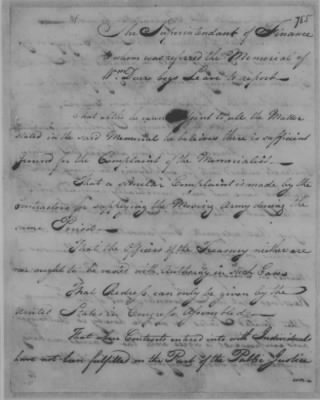 785
The Superintendant of Finance
to whom was referred the Memorial of
Wm. Duer begs Leave to report
That altho he cannot speak to all the Matter
stated in the said Memorial he believes there is sufficient
ground for the Complaint of the Memorialist.
That a similar Complaint is made by the
Contractors for supplying the Moving Army during the
same Period.
That the Officers of the Treasury neither are
nor ought to be vested with Authority in such Cases
That Redress can only be given by the
United States in Congress Assembled.
That where Contracts entered into with Individuals
have not been fulfilled on the Part of the Public Justice